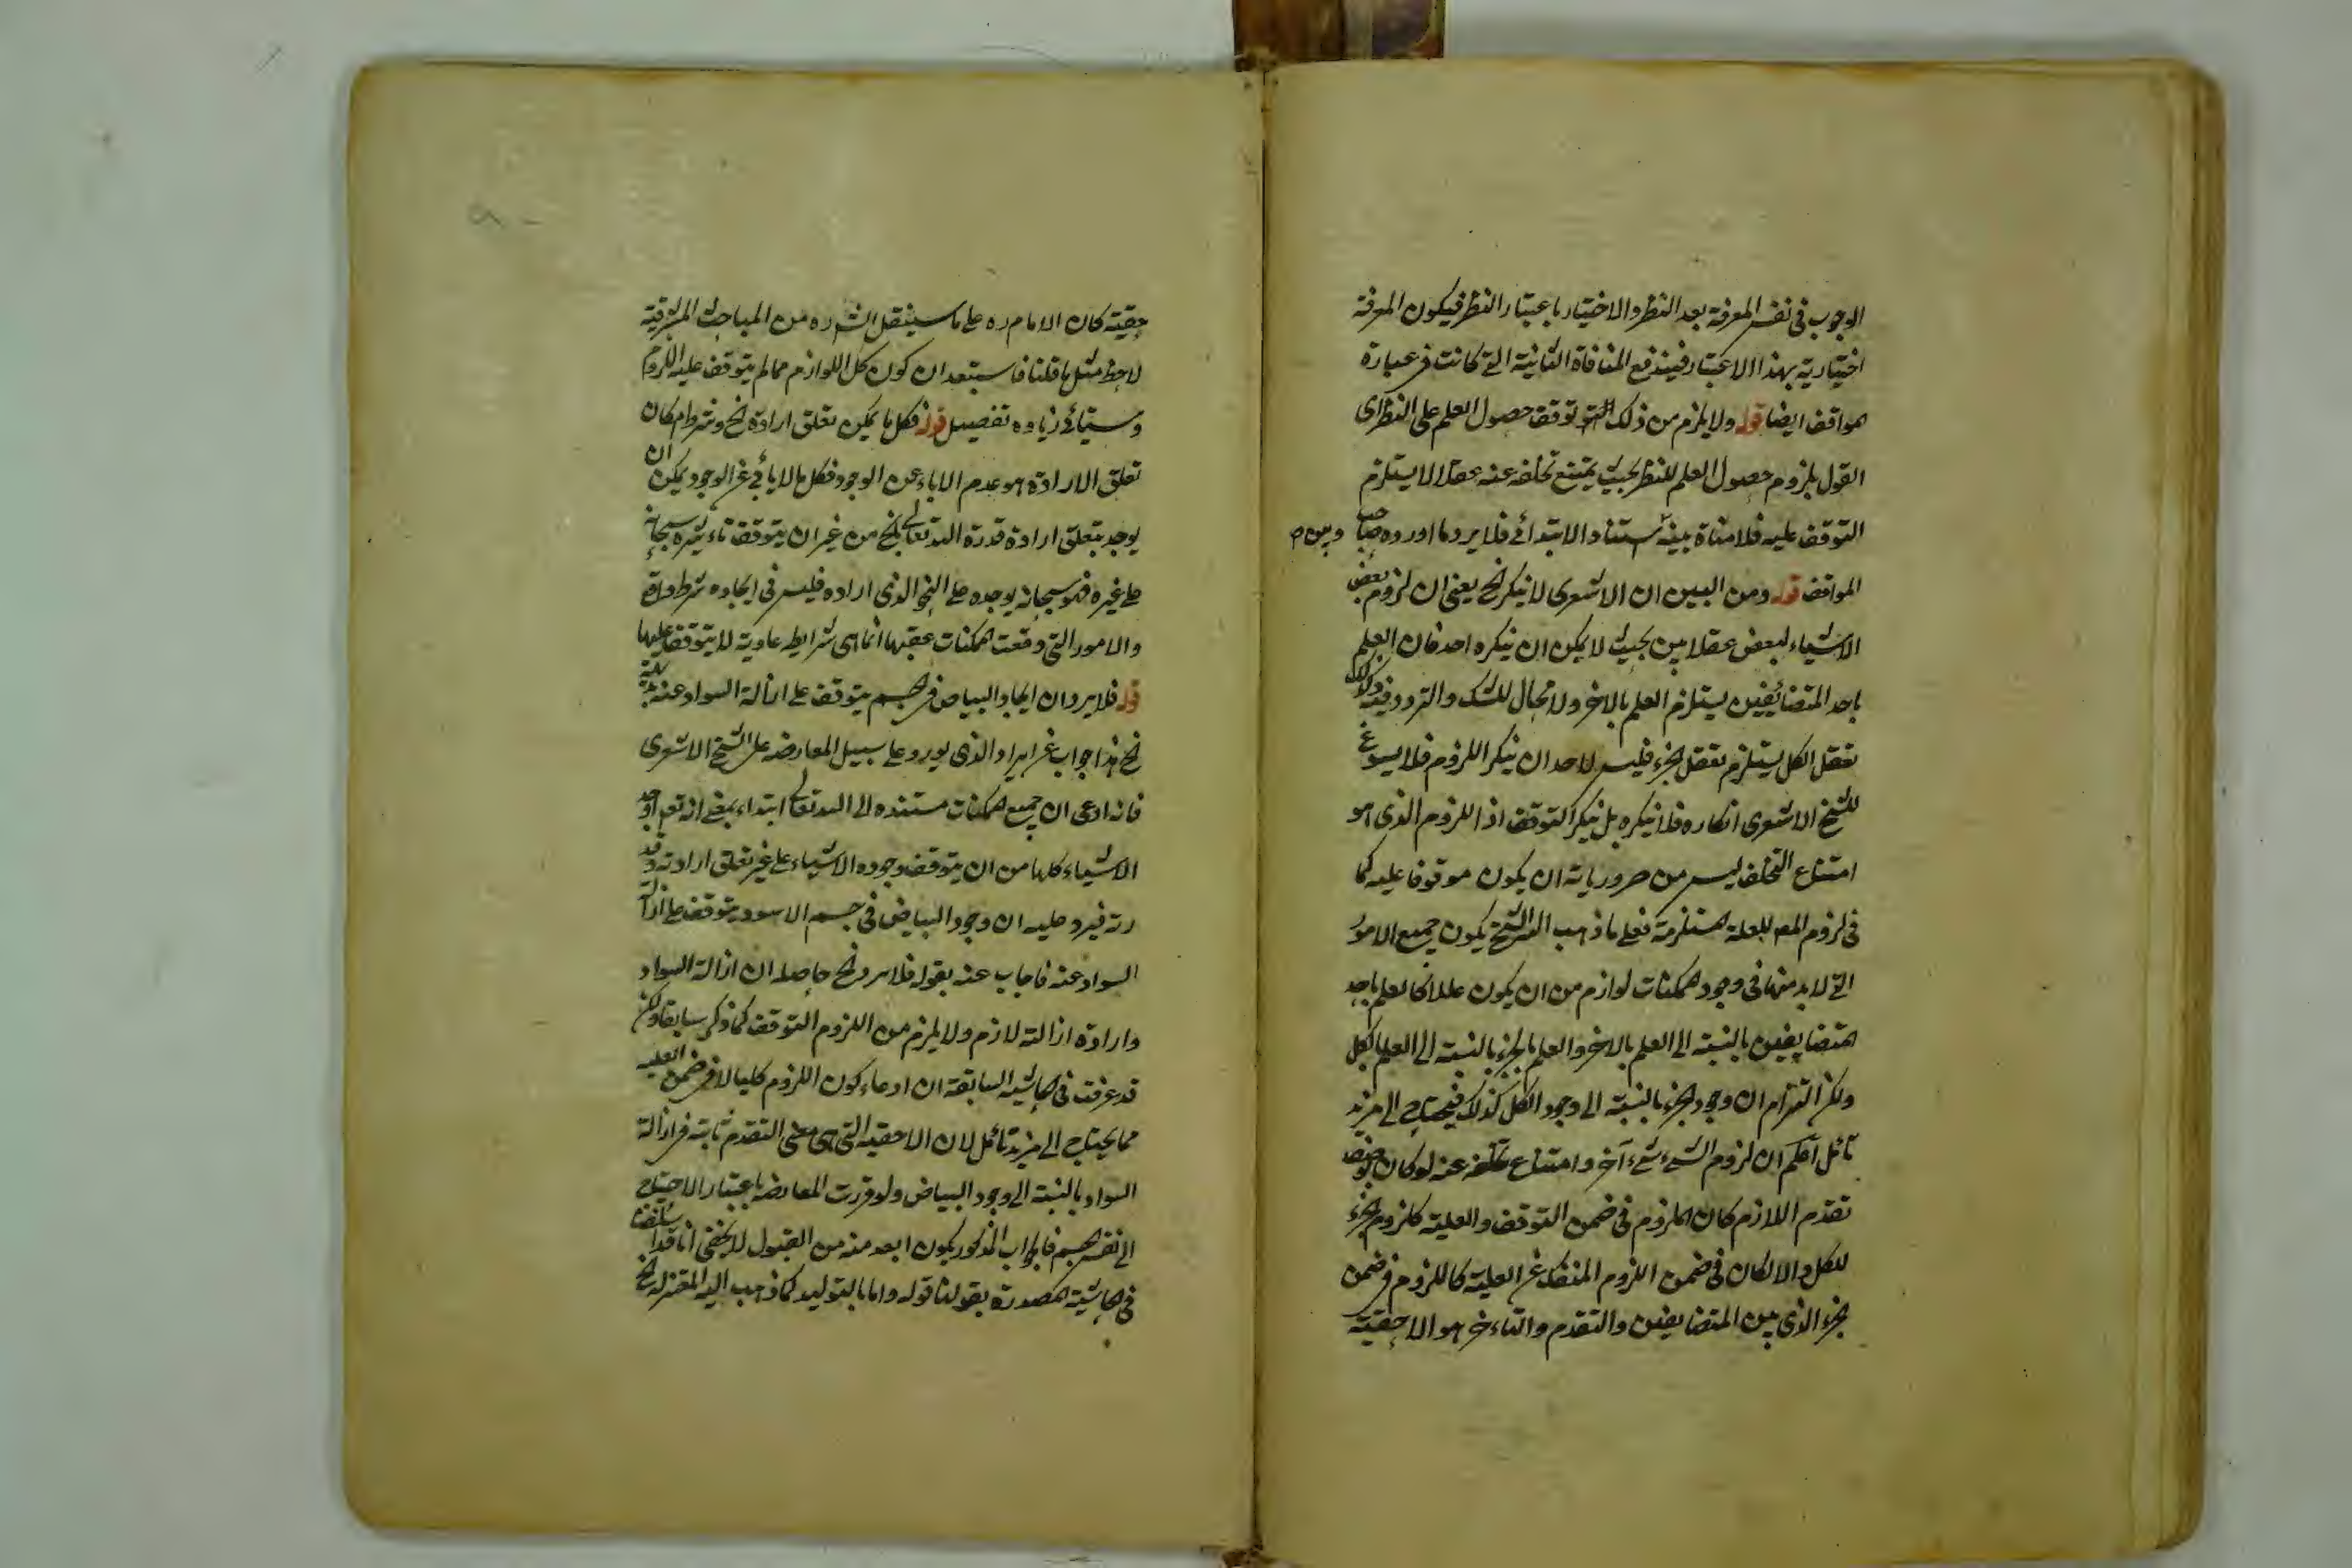 الوجوب فى نفس المعرفة بعد النظر والاختيار باعتبار النظر فيكون المعرفة
اختيارية بهذا الاعتبار فيندفع المنافاة الثانية التى كانت فى عبارة
المواقف ايضا قوله ولا يلزم من ذلك التوقف توقف حصول العلم على النظر اى
القول بلزوم حصول العلم للنظر بحيث يمتنع تخلفه عنه عقلا لا يستلزم
التوقف عليه فلا منافاة بينه استناد الابتدائى فلا يرد ما اورده صاحب
وبين
المواقف قوله ومن البين ان الاشعرى لا ينكر الخ يعنى ان لزوم بعض
الاشياء لبعض عقلا بين بحيث لا يمكن ان ينكره احد فان العلم
باحد المتضائفين يستلزم العلم بالاخر ولا مجال للشك والتردد فيه وكذلك
تعقل الكل يستلزم تعقل الجزء فليس لاحد ان ينكر اللزوم فلا يسوغ
للشيخ الاشعرى انكاره فلا ينكره بل ينكر التوقف اذ اللزوم الذى هو
امتناع التخلف ليس من ضرورياته ان يكون موقوفا عليه كما
فى لزوم المعه للعلة المستلزمة فعلى ما ذهب اليه الشيخ يكون جميع الامور
التى لا بد منها فى وجود الممكنات لوازم من ان يكون عللا كالعلم باحد
المتضايفين بالنسبة الى العلم بالاخر والعلم بالجزء بالنسبة الى العلم بالكل
ولكن التزام ان وجود الجزء بالنسبة الى وجود الكل كذلك فيحتاج الى مزيد
تأمل اعلم ان لزوم الشىء شىء آخر وامتناع تخلفه عنه لو كان بوصف
تقدم اللازم كان الملزوم فى ضمن التوقف والعلية كلزوم الجزء
للكل والا لكان فى ضمن اللزوم المنفك عن العلية كاللزوم فى ضمن
الجزء الذى بين المتضايفين والتقدم والتاءخر هو الاحقية
حقيته كان الامام ره على ما سينقل الش ره من المباحث المشرقية
لاحظ مثل ما قلنا فاستبعد ان كون كل اللوازم مما لم يتوقف عليه اللزوم
وسيتأتى زياده تفصيل قوله فكل ما يمكن تعلق ارادة الخ وشرط امكان
تعلق الارادة هو عدم الاباء عن الوجود فكل ما لا يأبى عن الوجود يمكن ان
يوجد بتعلق ارادة قدرة الله تعالى الخ من غير ان يتوقف تاءثيره سبحانه
على غيره فهو سبحانه يوجده على النحو الذى اراده فليس فى ايجاده شرط واقع
والامور التى وقعت الممكنات عقبها انما هى شرايط عادية لا يتوقف عليها
قوله فلا يرد ان ايجاد البياض فى الجسم يتوقف على ازالة السواد عنه
الخ هذا جواب عن ايراد الذى يورد على سبيل المعارضة على الشيخ الاشعرى
فانه ادعى ان جميع الممكنات مستنده الى الله تعالى ابتداء بمعنى انه تعم اوجد
الاشياء كلها من ان يتوقف وجوده الاشياء على غير تعلق ارادته وقد
رته فيرد عليه ان وجود البياض فى جسم الاسود يتوقف على ازالة
السواد عنه فاجاب عنه بقوله فلا يرد الخ حاصله ان ازالة السواد
وارادة ازالته لازم ولا يلزم من اللزوم التوقف كما ذكر سابقا ولكن
قد عرفت فى الحاشية السابقة ان ادعاء كون اللزوم كليا لا فى ضمن العلية
مما يحتاج الى مزيد تأمل لان الاحقية التى هى معنى التقدم ثابتة فى ازالة
السواد بالنسبة الى وجود البياض ولو قررت المعارضة باعتبار الاحتياج
الى نفس الجسم فالجواب المذكور يكون ابعد منه من القبول لا يخفى انا قد اسلفنا
فى الحاشية المصدرة بقولنا قوله واما بالتوليد كما ذهب اليه المعتزلة الخ